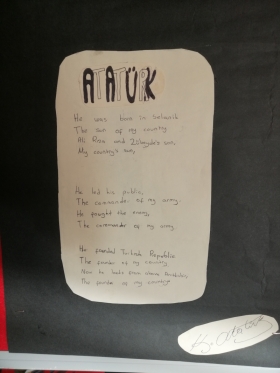 ATATÜRK
He was born in Selanik
The sun of my country
Ali Rıza and Zübeyde's son,
My country's sun,
He led his public,
The commander of my army.
He fought the enemy,
The commander of my army.
He founded Turkish Republic
The founder of my country
Now he looks from above
The founder of my country